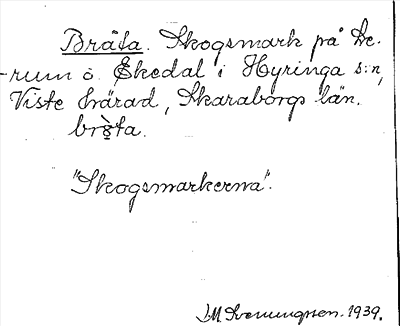 Bråta. Skogsmark på Le-
rum o. Ekedal i Hyringa s:n,
Viste härad, Skaraborgs län.
bròta.
"Skogsmarkerna".
1939.